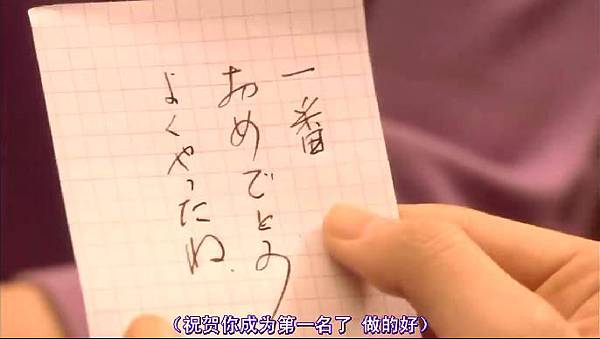 一番
おめでとう
よくやったね
（祝贺你成为第一名了 做的好）